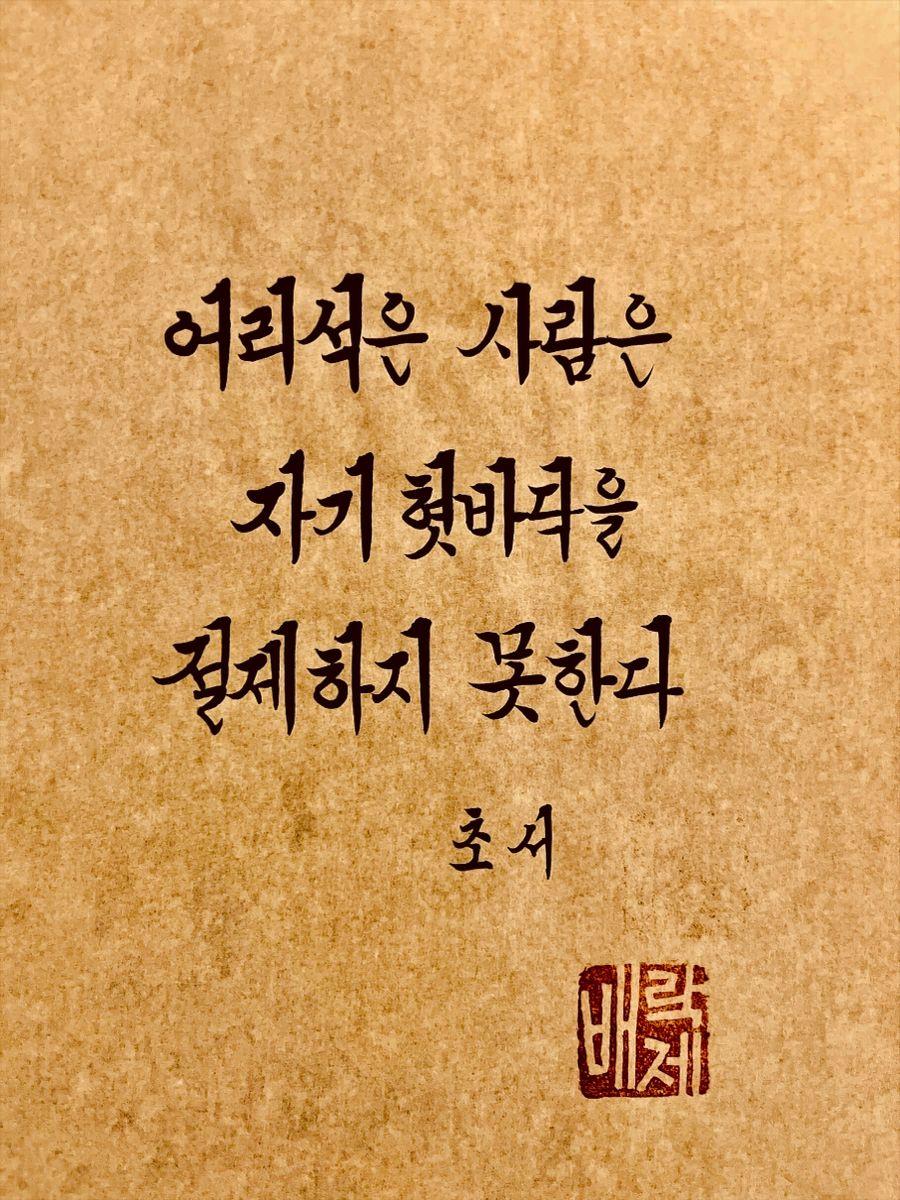 어리석은 사람은
자기 혓바닥을
절제하지 못한다
초서
배락제